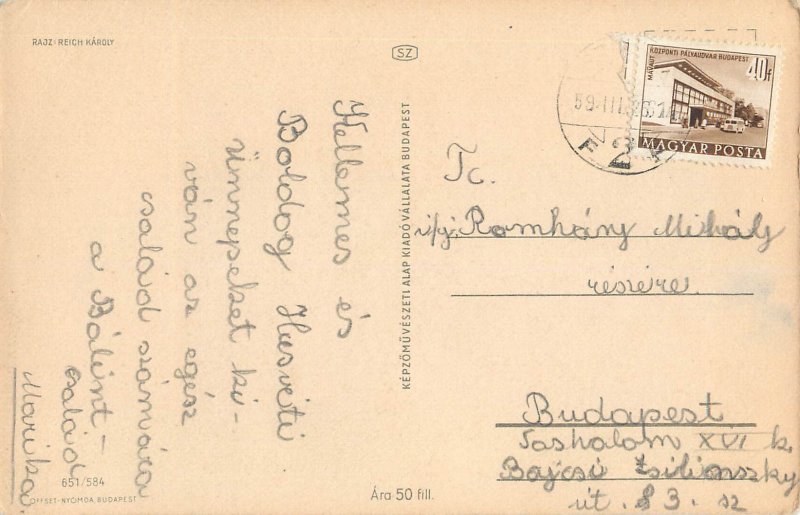 RAJZ: REICH KÁROLY
SZ
Kellemes és
Boldog Husvéti
ünnepeket ki-
ván az egész
család számára
a Bálint-
család
Marika
651/584
OFFSET-NYOMDA, BUDAPEST
Ára 50 fill.
KÉPZŐMŰVÉSZETI ALAP KIADÓVÁLLALATA BUDAPEST
MÁVAUT KÖZPONTI PÁLYAUDVAR BUDAPEST
40f
MAGYAR POSTA
59 III
2
Tc.
ifj. Romhány Mihály
részére
Budapest
Sashalom XVI k.
Bajcsi Zsilinszky
út. 83. sz